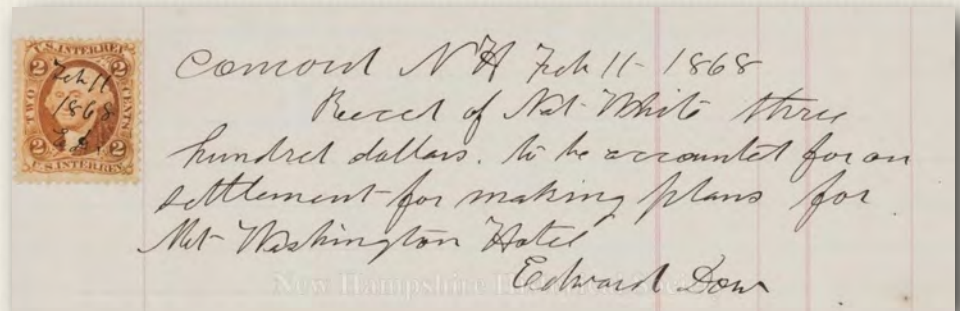 U.S. INTER. REV.
2 2
TWO CENTS
Feb 11
1868
2 2
U.S. INTER. REV.
Concord N H Feb 11 - 1868
Recd of Nat White three
hundred dollars. to be accounted for on
settlement for making plans for
Mt Washington Hotel
Edward Dow
New Hampshire Historical Society